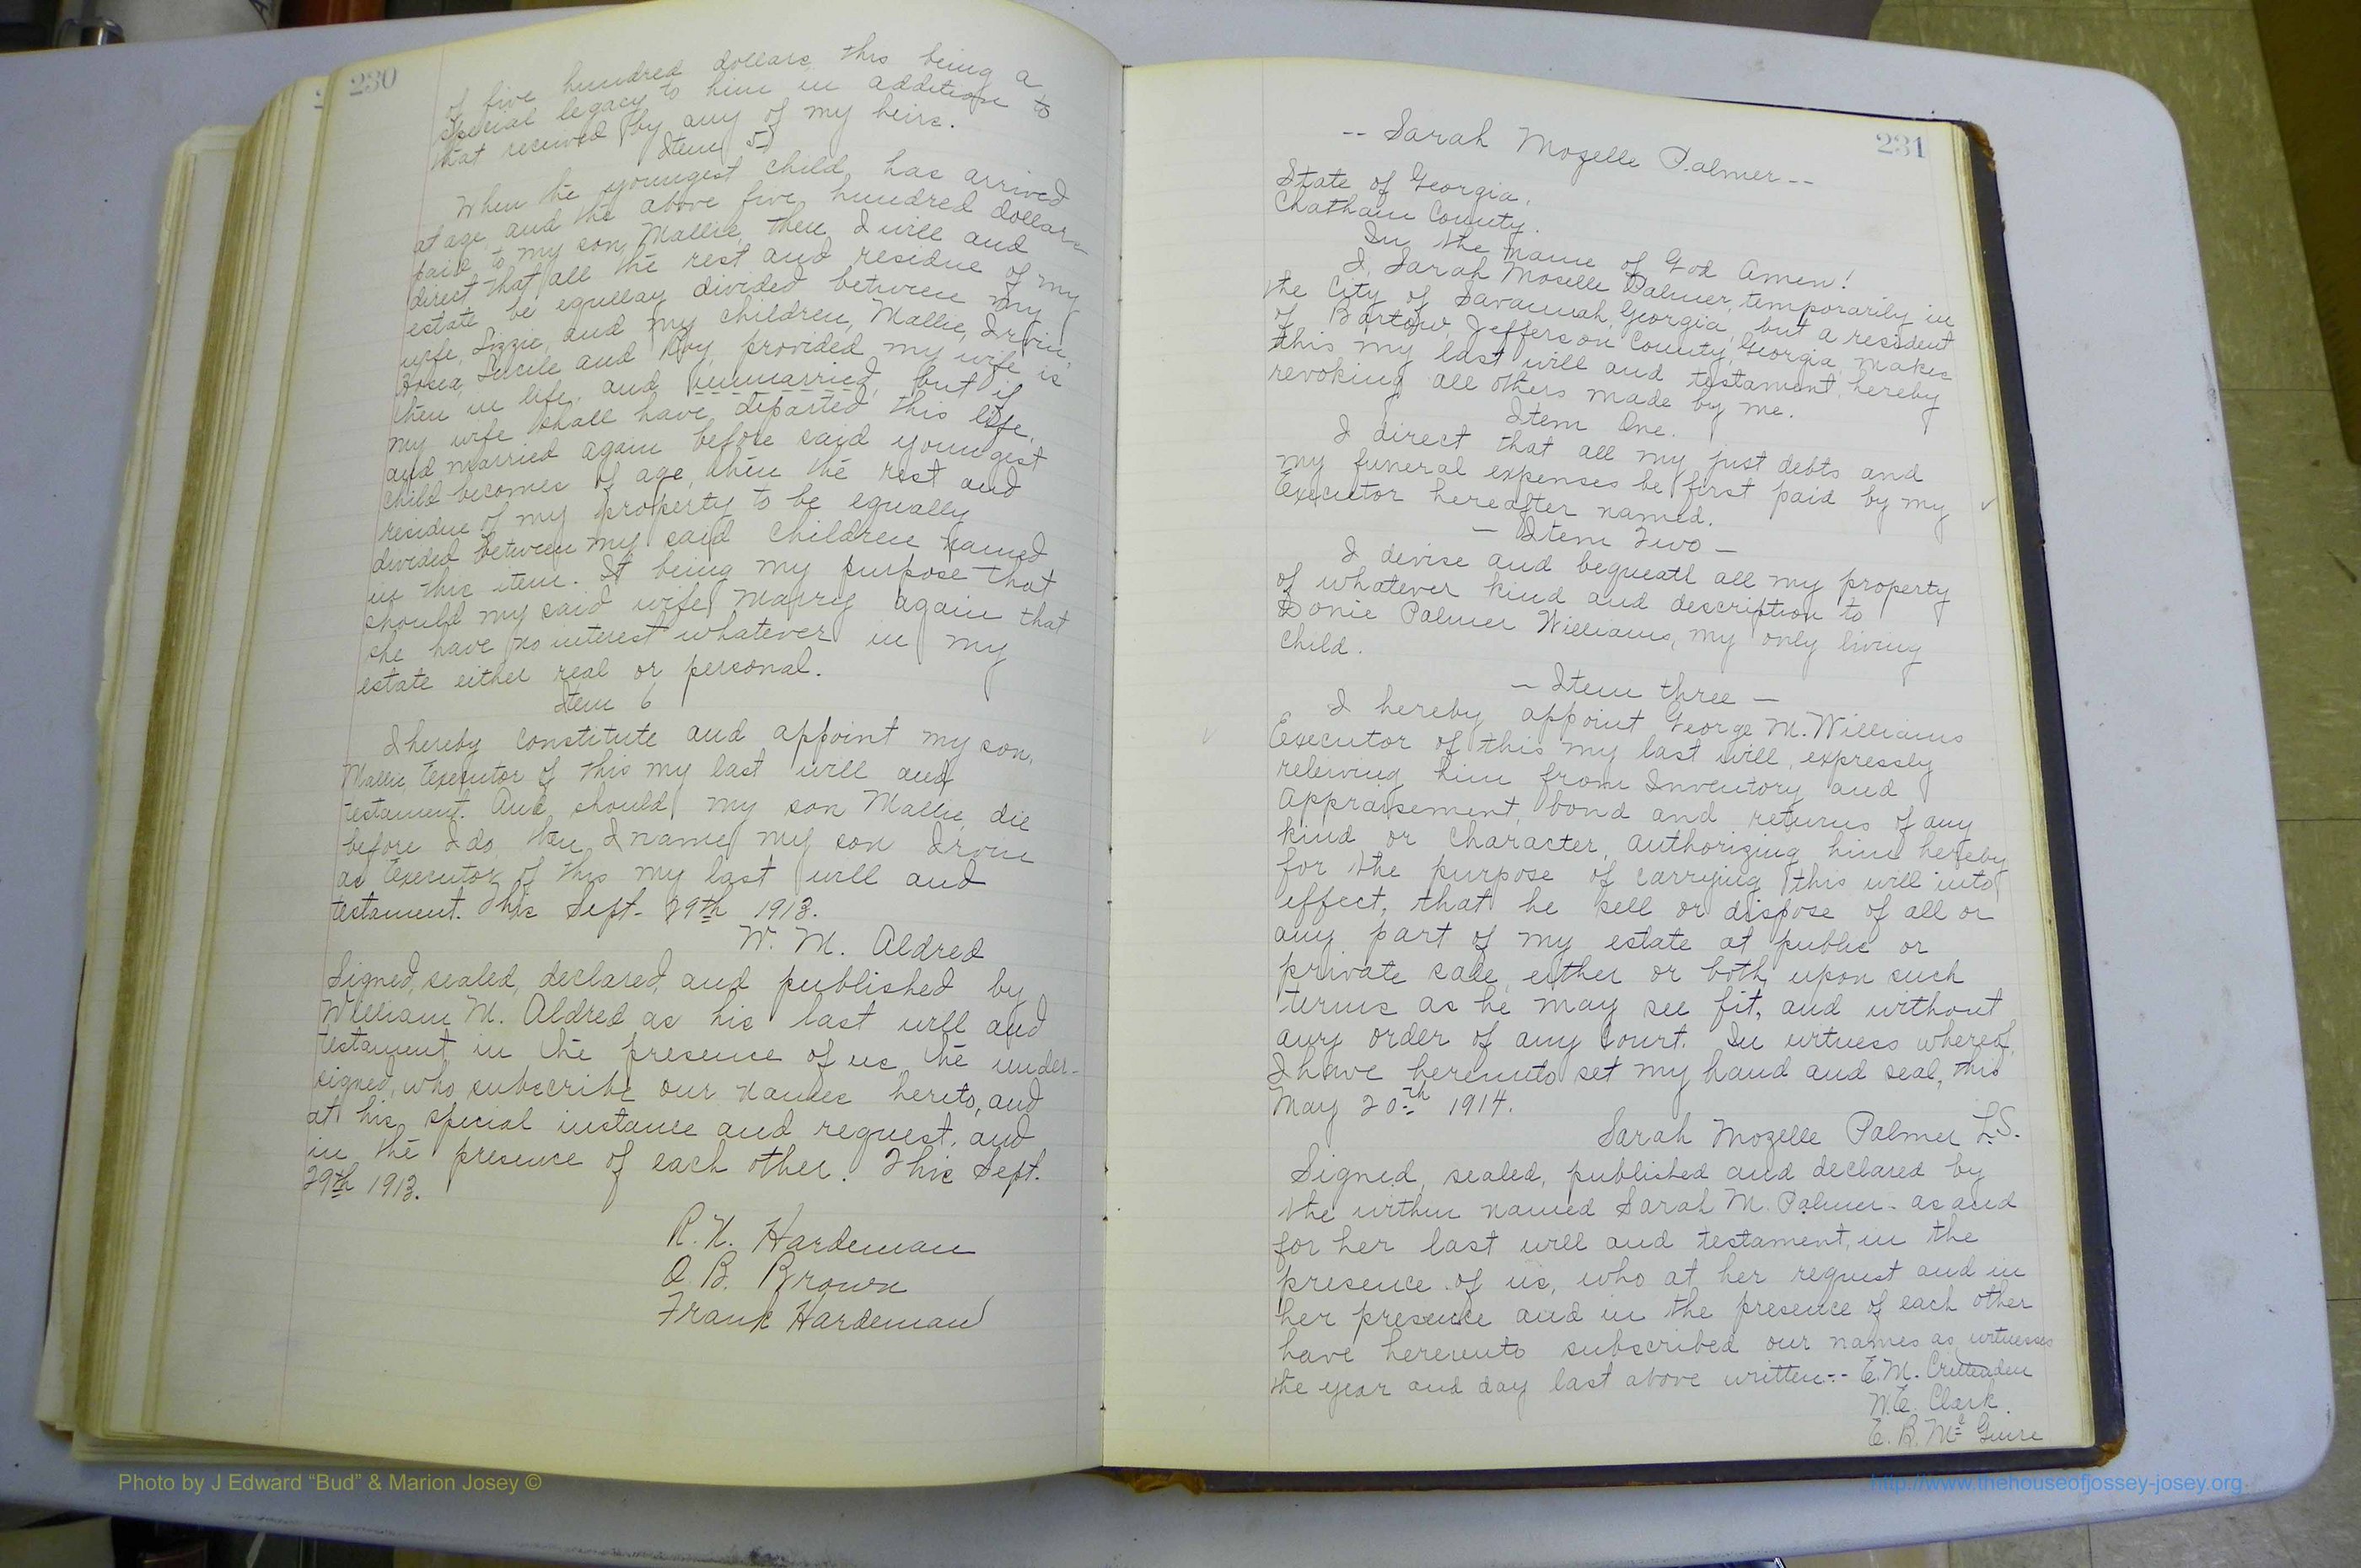 230
of five hundred dollars, this being a
special legacy to him in addition to
that received by any of my heirs.
Item 5
When the youngest child, has arrived
at age, and the above five hundred dollars
paid to my son, Mallie, then I will and
direct that all the rest and residue of my
estate be equellay divided between my
wife, Lizzie, and my children, Mallie, Irvin,
Hosea, Lucile and Roy, provided my wife is
then in life, and unmarried, but if
my wife shall have departed this life,
and married again before said youngest
child becomes of age, then the rest and
residue of my property to be equally
divided between my said children named
in this item. It being my purpose that
should my said wife marry again that
she have no interest whatever in my
estate either real or personal.
Item 6
I hereby constitute and appoint my son,
Mallie Executor of this my last will and
testament. And should my son Mallie die
before I do, then I name my son Irvin
as Executor of this my last will and
testament. This Sept. 29th 1913.
W. M. Aldred
Signed, sealed, declared, and published by
William M. Aldred as his last will and
testament in the presence of us, the under-
signed, who subscribe our names hereto, and
at his special instance and request, and
in the presence of each other. This Sept.
29th 1913.
R. N. Hardeman
O. B. Brown
Frank Hardeman
231
-- Sarah Mozelle Palmer --
State of Georgia,
Chatham County.
In the name of God Amen!
I, Sarah Moselle Palmer, temporarily in
the City of Savannah, Georgia, but a resident
of Bartow, Jefferson County, Georgia, makes
this my last will and testament, hereby
revoking all others made by me.
Item One.
I direct that all my just debts and
my funeral expenses be first paid by my
Executor hereafter named.
- Item Two -
I devise and bequeath all my property
of whatever kind and description to
Donie Palmer Williams, my only living
child.
- Item three -
I hereby appoint George M. Williams
Executor of this my last will, expressly
releiving him from Inventory and
Appraisement, bond and returns of any
kind or character, authorizing him hereby
for the purpose of carrying this will into
effect, that he sell or dispose of all or
any part of my estate at public or
private sale, either or both, upon such
terms as he may see fit, and without
any order of any Court. In witness whereof,
I have hereunto set my hand and seal, this
May 20th 1914.
Sarah Mozelle Palmer L.S.
Signed, sealed, published and declared by
the within named Sarah M. Palmer - as and
for her last will and testament, in the
presence of us, who at her request and in
her presence and in the presence of each other
have hereunto subscribed our names as witnesses
the year and day last above written -- E. M. Crittenden
W. E. Clark.
E. R. Mc Guire
Photo by J Edward “Bud” & Marion Josey ©
http://www.thehouseofjossey-josey.org